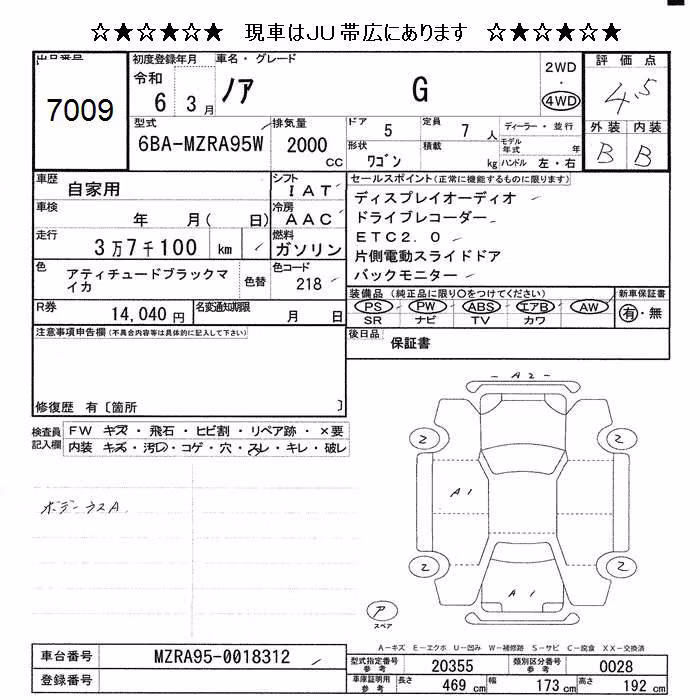 ☆★☆★☆★ 現車はJU帯広にあります ☆★☆★☆★
出品番号
7009
初度登録年月
令和
6 3月
車名・グレード
ノア G
2WD
・
4WD
評価点
4.5
外装 内装
B B
型式
6BA-MZRA95W
排気量
2000
cc
ドア 5
定員 7人
ディーラー・並行
形状 ワゴン
積載 kg
モデル年式 年
ハンドル 左・右
車歴 自家用
シフト IAT
車検 年 月( 日)
冷房 AAC
走行 3万7千100 km
燃料 ガソリン
色 アティチュードブラックマイカ
色替
色コード 218
R券 14,040円
名変通知期限 月 日
セールスポイント(正常に機能するものに限ります)
ディスプレイオーディオ
ドライブレコーダー
ETC2.0
片側電動スライドドア
バックモニター
装備品(純正品に限り○をつけてください)
PS PW ABS エアB AW
SR ナビ TV カワ
新車保証書
有・無
後日品 保証書
注意事項申告欄(不具合内容等は具体的に記入して下さい)
修復歴 有〔箇所 〕
検査員記入欄
FW キズ・飛石・ヒビ割・リペア跡・×要
内装 キズ・汚れ・コゲ・穴・スレ・キレ・破レ
ボデーウスA
A2
2 2
A1
2 2
A1
ア
スペア
A-キズ E-エクボ U-凹み W-補修跡 S-サビ C-腐食 XX-交換済
車台番号 MZRA95-0018312
登録番号
型式指定番号参考 20355
類別区分番号参考 0028
車庫証明用参考
長さ 469cm 幅 173cm 高さ 192cm